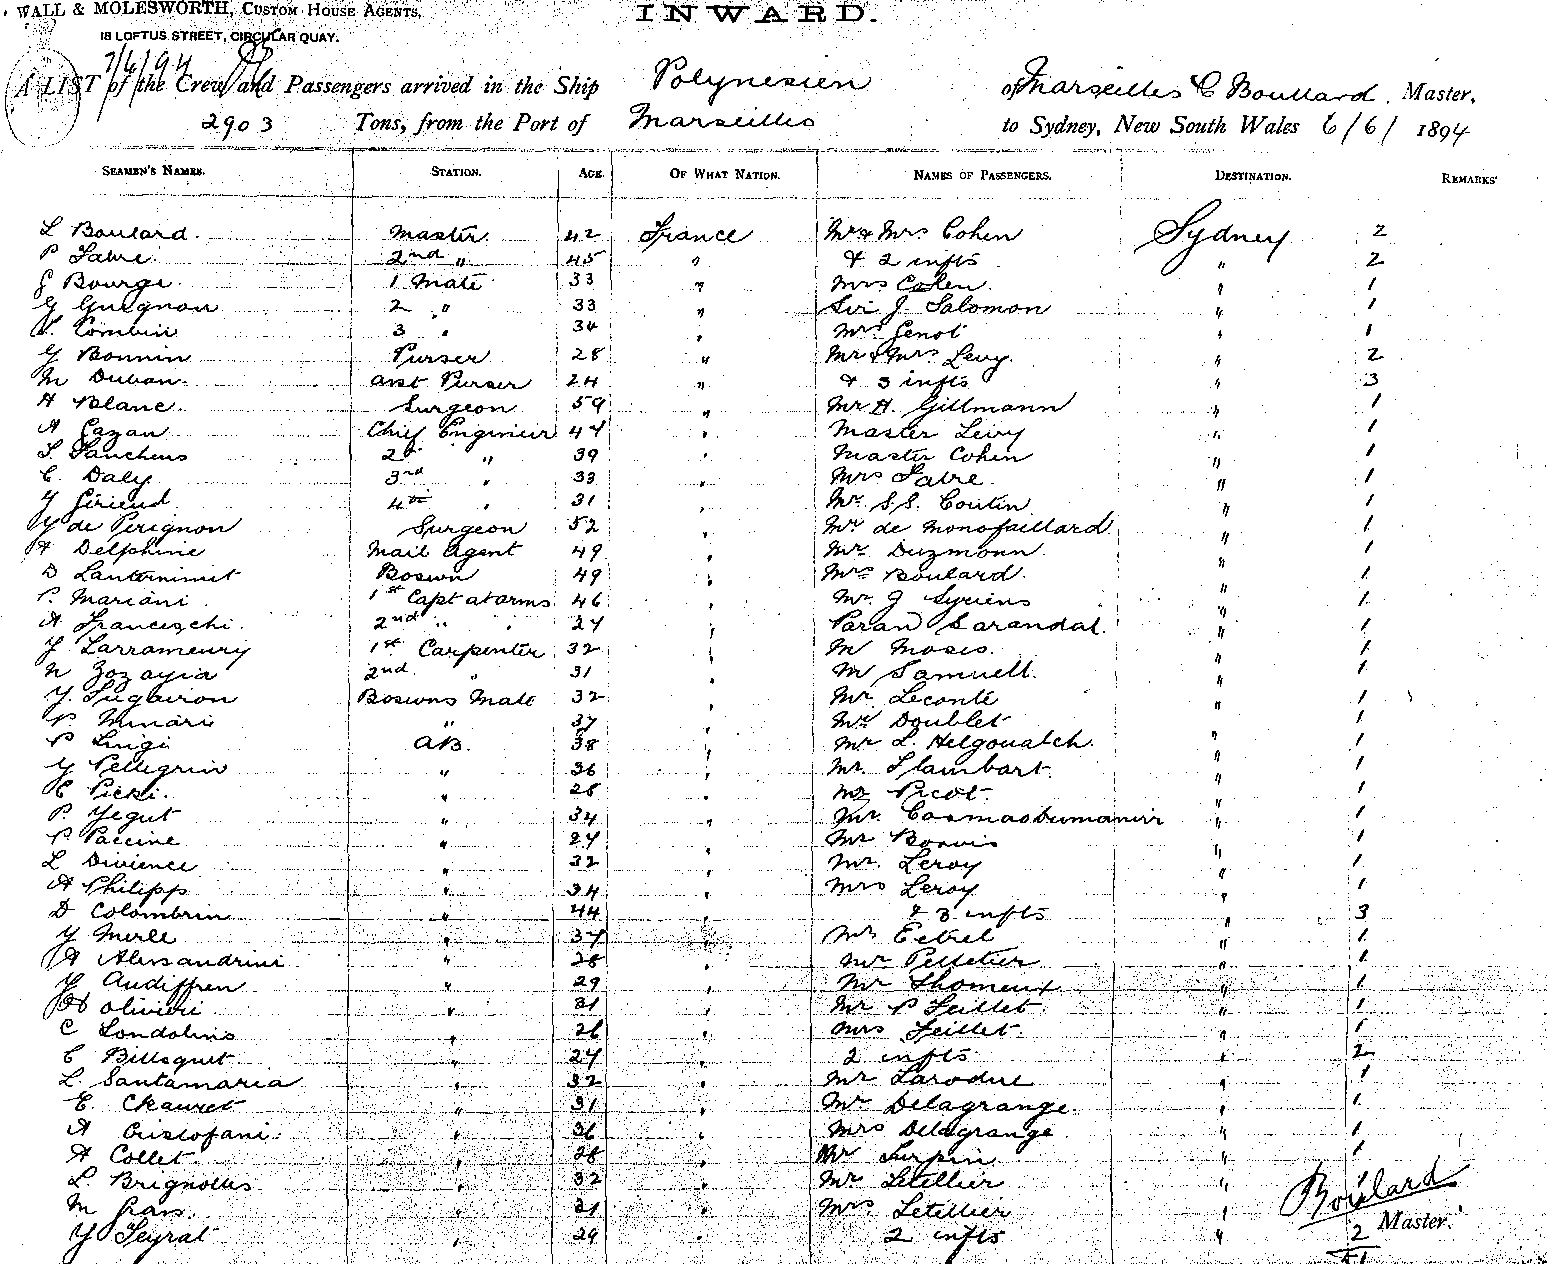 WALL & MOLESWORTH, CUSTOM HOUSE AGENTS,
18 LOFTUS STREET, CIRCULAR QUAY.
INWARD.
7/6/94
A LIST of the Crew and Passengers arrived in the Ship Polynesien of Marseilles C Boulard, Master,
2903 Tons, from the Port of Marseilles to Sydney, New South Wales 6/6/ 1894
SEAMEN'S NAMES. STATION. AGE. OF WHAT NATION. NAMES OF PASSENGERS. DESTINATION. REMARKS
L Boulard Master 42 France Mr & Mrs Cohen Sydney 2
P Fabre 2nd " 45 " & 2 infts " 2
Bourge 1 Mate 33 " Mrs Cohen " 1
G Guegnon 2 " 33 " Sir J. Salomon " 1
Combin 3 " 34 " Genot " 1
G Bonnin Purser 28 " Mr & Mrs Levy " 2
M Duban asst Purser 24 " & 3 infts " 3
A Blanc Surgeon 59 " Mr A. Gillmann " 1
A Cazan Chief Engineer 47 " Master Levy " 1
2d " 39 " Master Cohen " 1
C. Daly 3rd " 33 " Mrs Fabre " 1
4th " 31 " Mr. S.S. Coutin " 1
Y de Perignon Surgeon 52 " Mr de Monofaillard " 1
A Delphine Mail Agent 49 " Mr " 1
D Boswn 49 " Mrs Boulard " 1
P. Mariani 1st Capt at arms 46 " Mr. J Syriens " 1
A Franceschi 2nd " " 27 " Paran Sarandat " 1
Y Larrameury 1st Carpenter 32 " M Moses " 1
N Zozayia 2nd " 31 " M Samuell " 1
Y. Boswns Mate 32 " Mr Leconte " 1
P. Minari " 37 " Mr Doublet " 1
P Luigi AB. 38 " Mr L. Helgoualch " 1
Y Pellegrin " 36 " Mr. Flambart " 1
Pieri " 28 " Picot " 1
P. Yegut " 34 " Mr. " 1
P Paccine " 27 " Mr " 1
L Divience " 32 " Mr. Leroy " 1
A Philipp " 34 " Mrs Leroy " 1
D Colombrin " 44 " & 3 infts " 3
Y Merle " 37 " Mr " 1
A Alessandrini " 28 " Mr Pelletier " 1
Y Audiffren " 29 " Mr " 1
Olivieri " 31 " Mr P Feillet " 1
C Londolins " 26 " Mrs Feillet " 1
C Billsquet " 27 " 2 infts " 2
L. Santamaria " 32 " Mr " 1
E. Chauvet " 31 " Mr Delagrange " 1
A Cristofani " 36 " Mrs Delagrange " 1
A Collet " 28 " Mr Turpin " 1
L. Brignolles " 32 " Mr Letellier "
M Grass " 31 " Mrs Letellier "
Y Seyrat " 29 " 2 infts " 2
Boulard
Master.